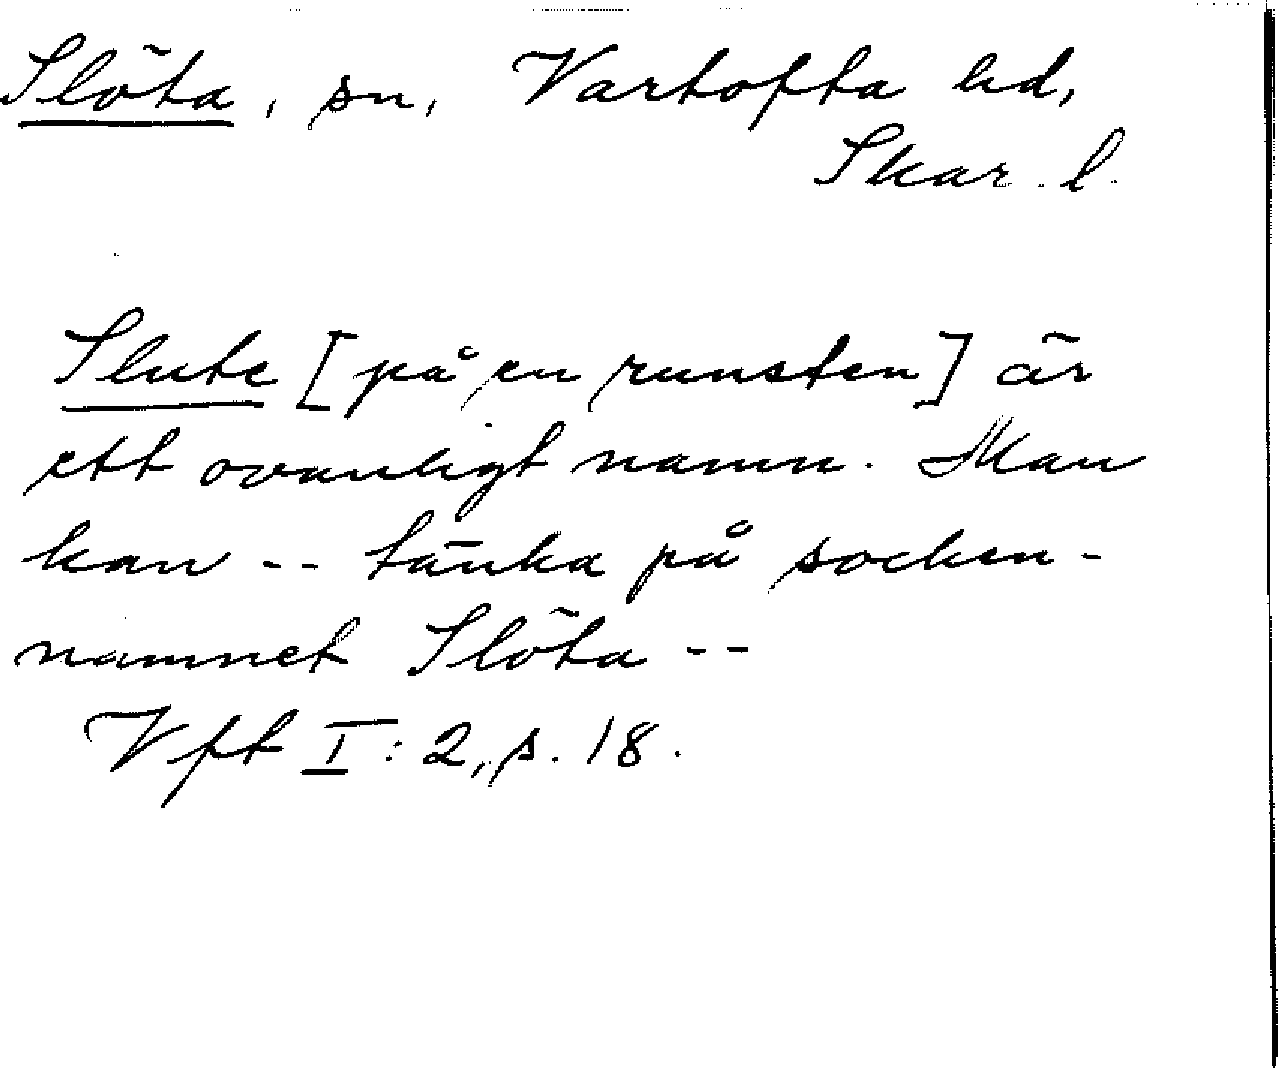 Slöta, sn, Vartofta hd,
Skar. l.
Slute [på en runsten] är
ett ovanligt namn. Man
kan -- tänka på socken-
namnet Slöta --
Vft I:2, s. 18.